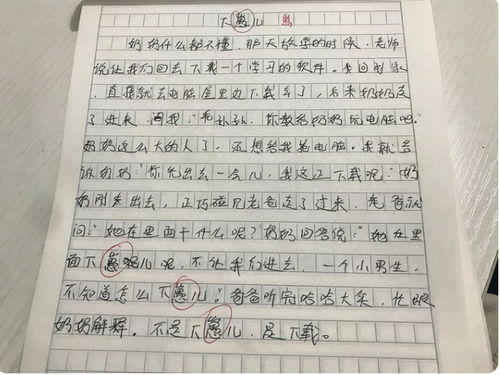 下崽儿 崽
奶奶什么都不懂,那天放学的时候,老师
说让我们回去下载一个学习的软件。我回到家
,直接就去电脑屋里边下载去了,后来奶奶走
了进来,问我:"老孙子,你教教奶奶玩电脑吧。"
奶奶这么大的人了,还想给我抢电脑。我就告
诉奶奶:"你先出去一会儿,我这正下载呢。"奶
奶刚走出去,正巧碰见老爸走了过来,老爸就
问:"她在里面干什么呢?"奶奶回答说:"她在里
面下崽 儿呢,不让我们进去,一个小男生,
不知道怎么下崽儿。"爸爸听完哈哈大笑,忙跟
奶奶解释,不是下崽儿,是下载。